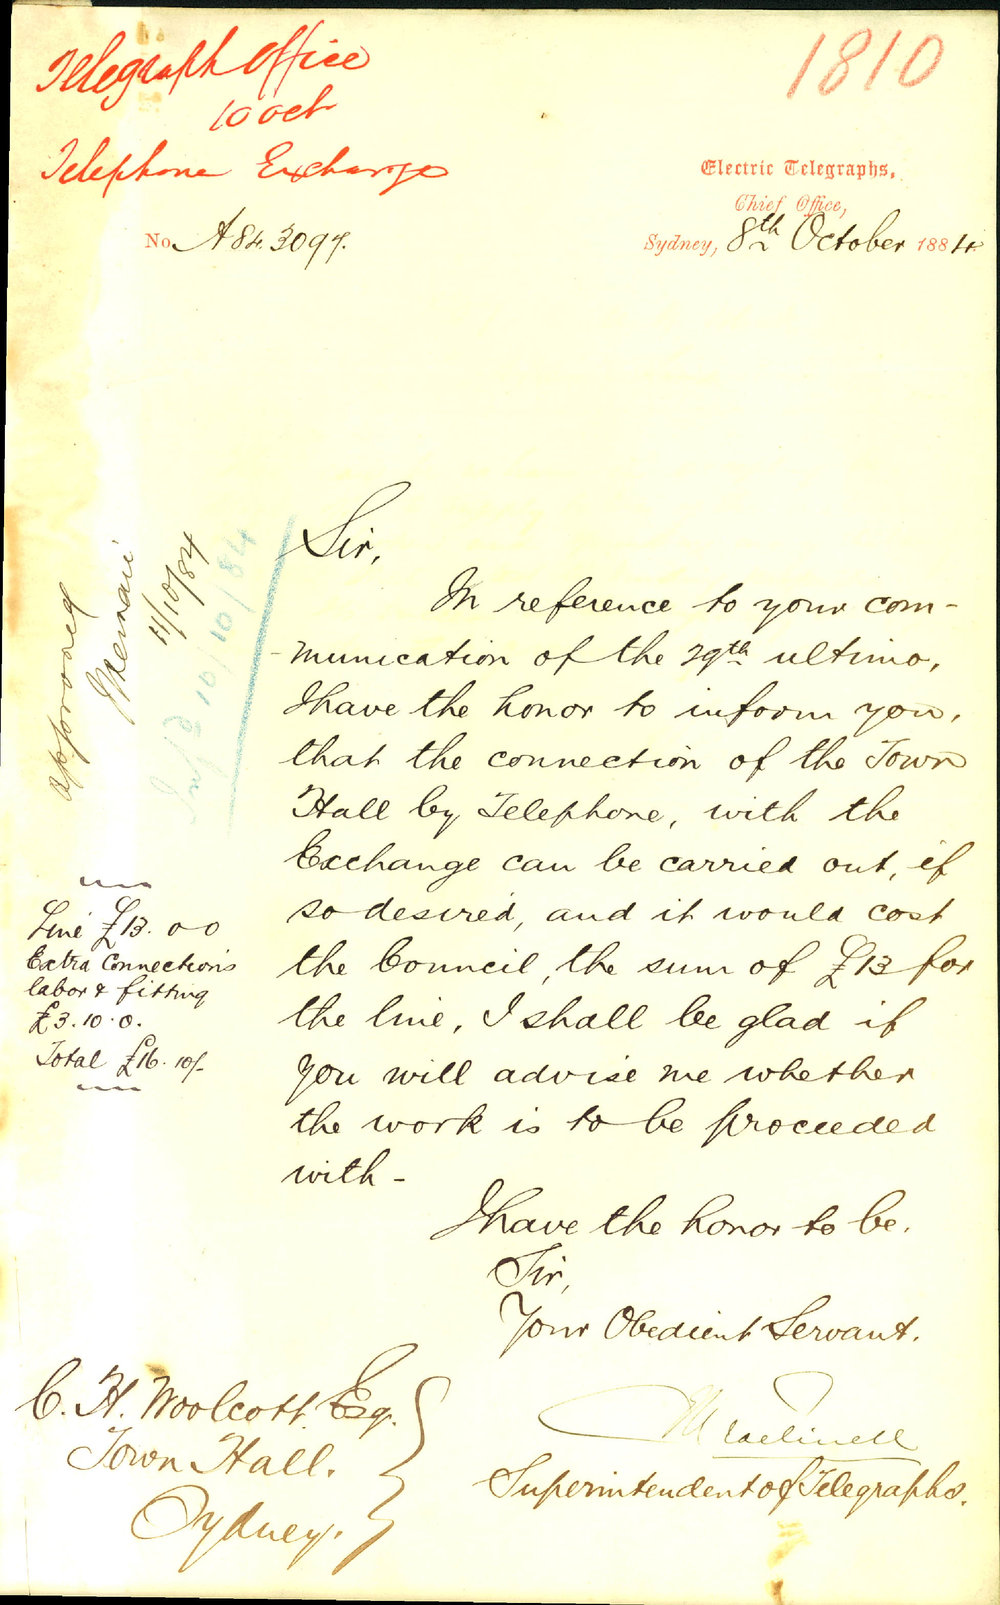 Telegraph Office
10 Oct
Telephone Exchange
1810
Electric Telegraphs,
Chief Office,
No. A84.3097.
Sydney, 8th October 1884
Sir,
In reference to your com-
munication of the 29th ultimo,
I have the honor to inform you,
that the connection of the Town
Hall by Telephone, with the
Exchange can be carried out, if
so desired, and it would cost
the Council, the sum of £13 for
the line, I shall be glad if
you will advise me whether
the work is to be proceeded
with -
I have the honor to be.
Sir,
Your Obedient Servant.
Superintendent of Telegraphs.
C. H. Woolcott Esq.
Town Hall.
Sydney.
approved
11/10/84
10/10/84
Line £13.0 0
Extra Connections
labor & fitting
£3.10.0.
Total £16.10/-